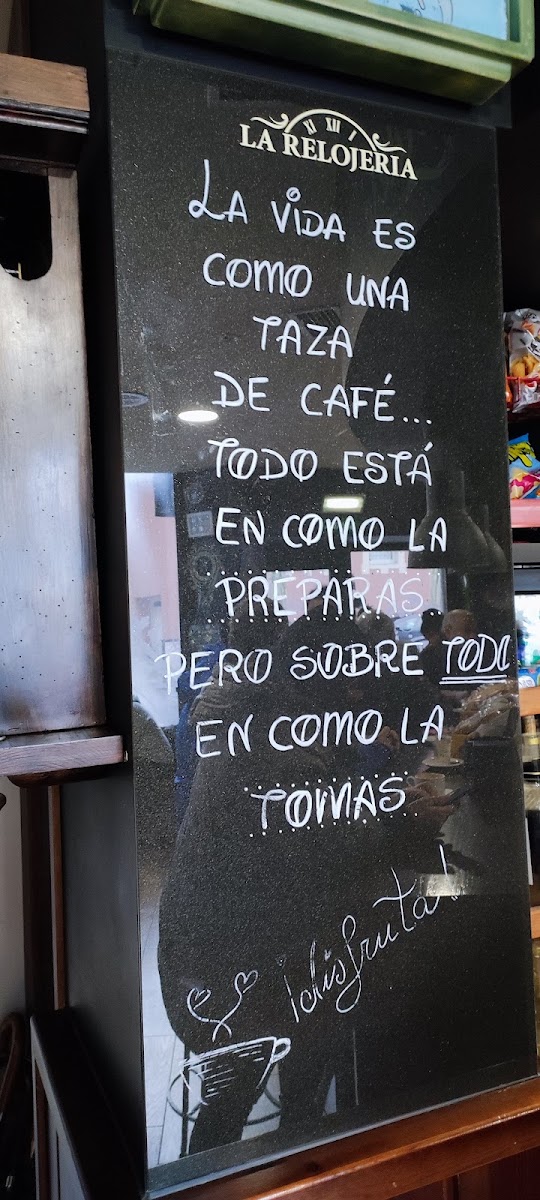 XI XII I
LA RELOJERIA
LA VIDA ES
COMO UNA
TAZA
DE CAFÉ...
TODO ESTÁ
EN COMO LA
PREPARAS
PERO SOBRE TODO
EN COMO LA
TOMAS
¡disfruta!